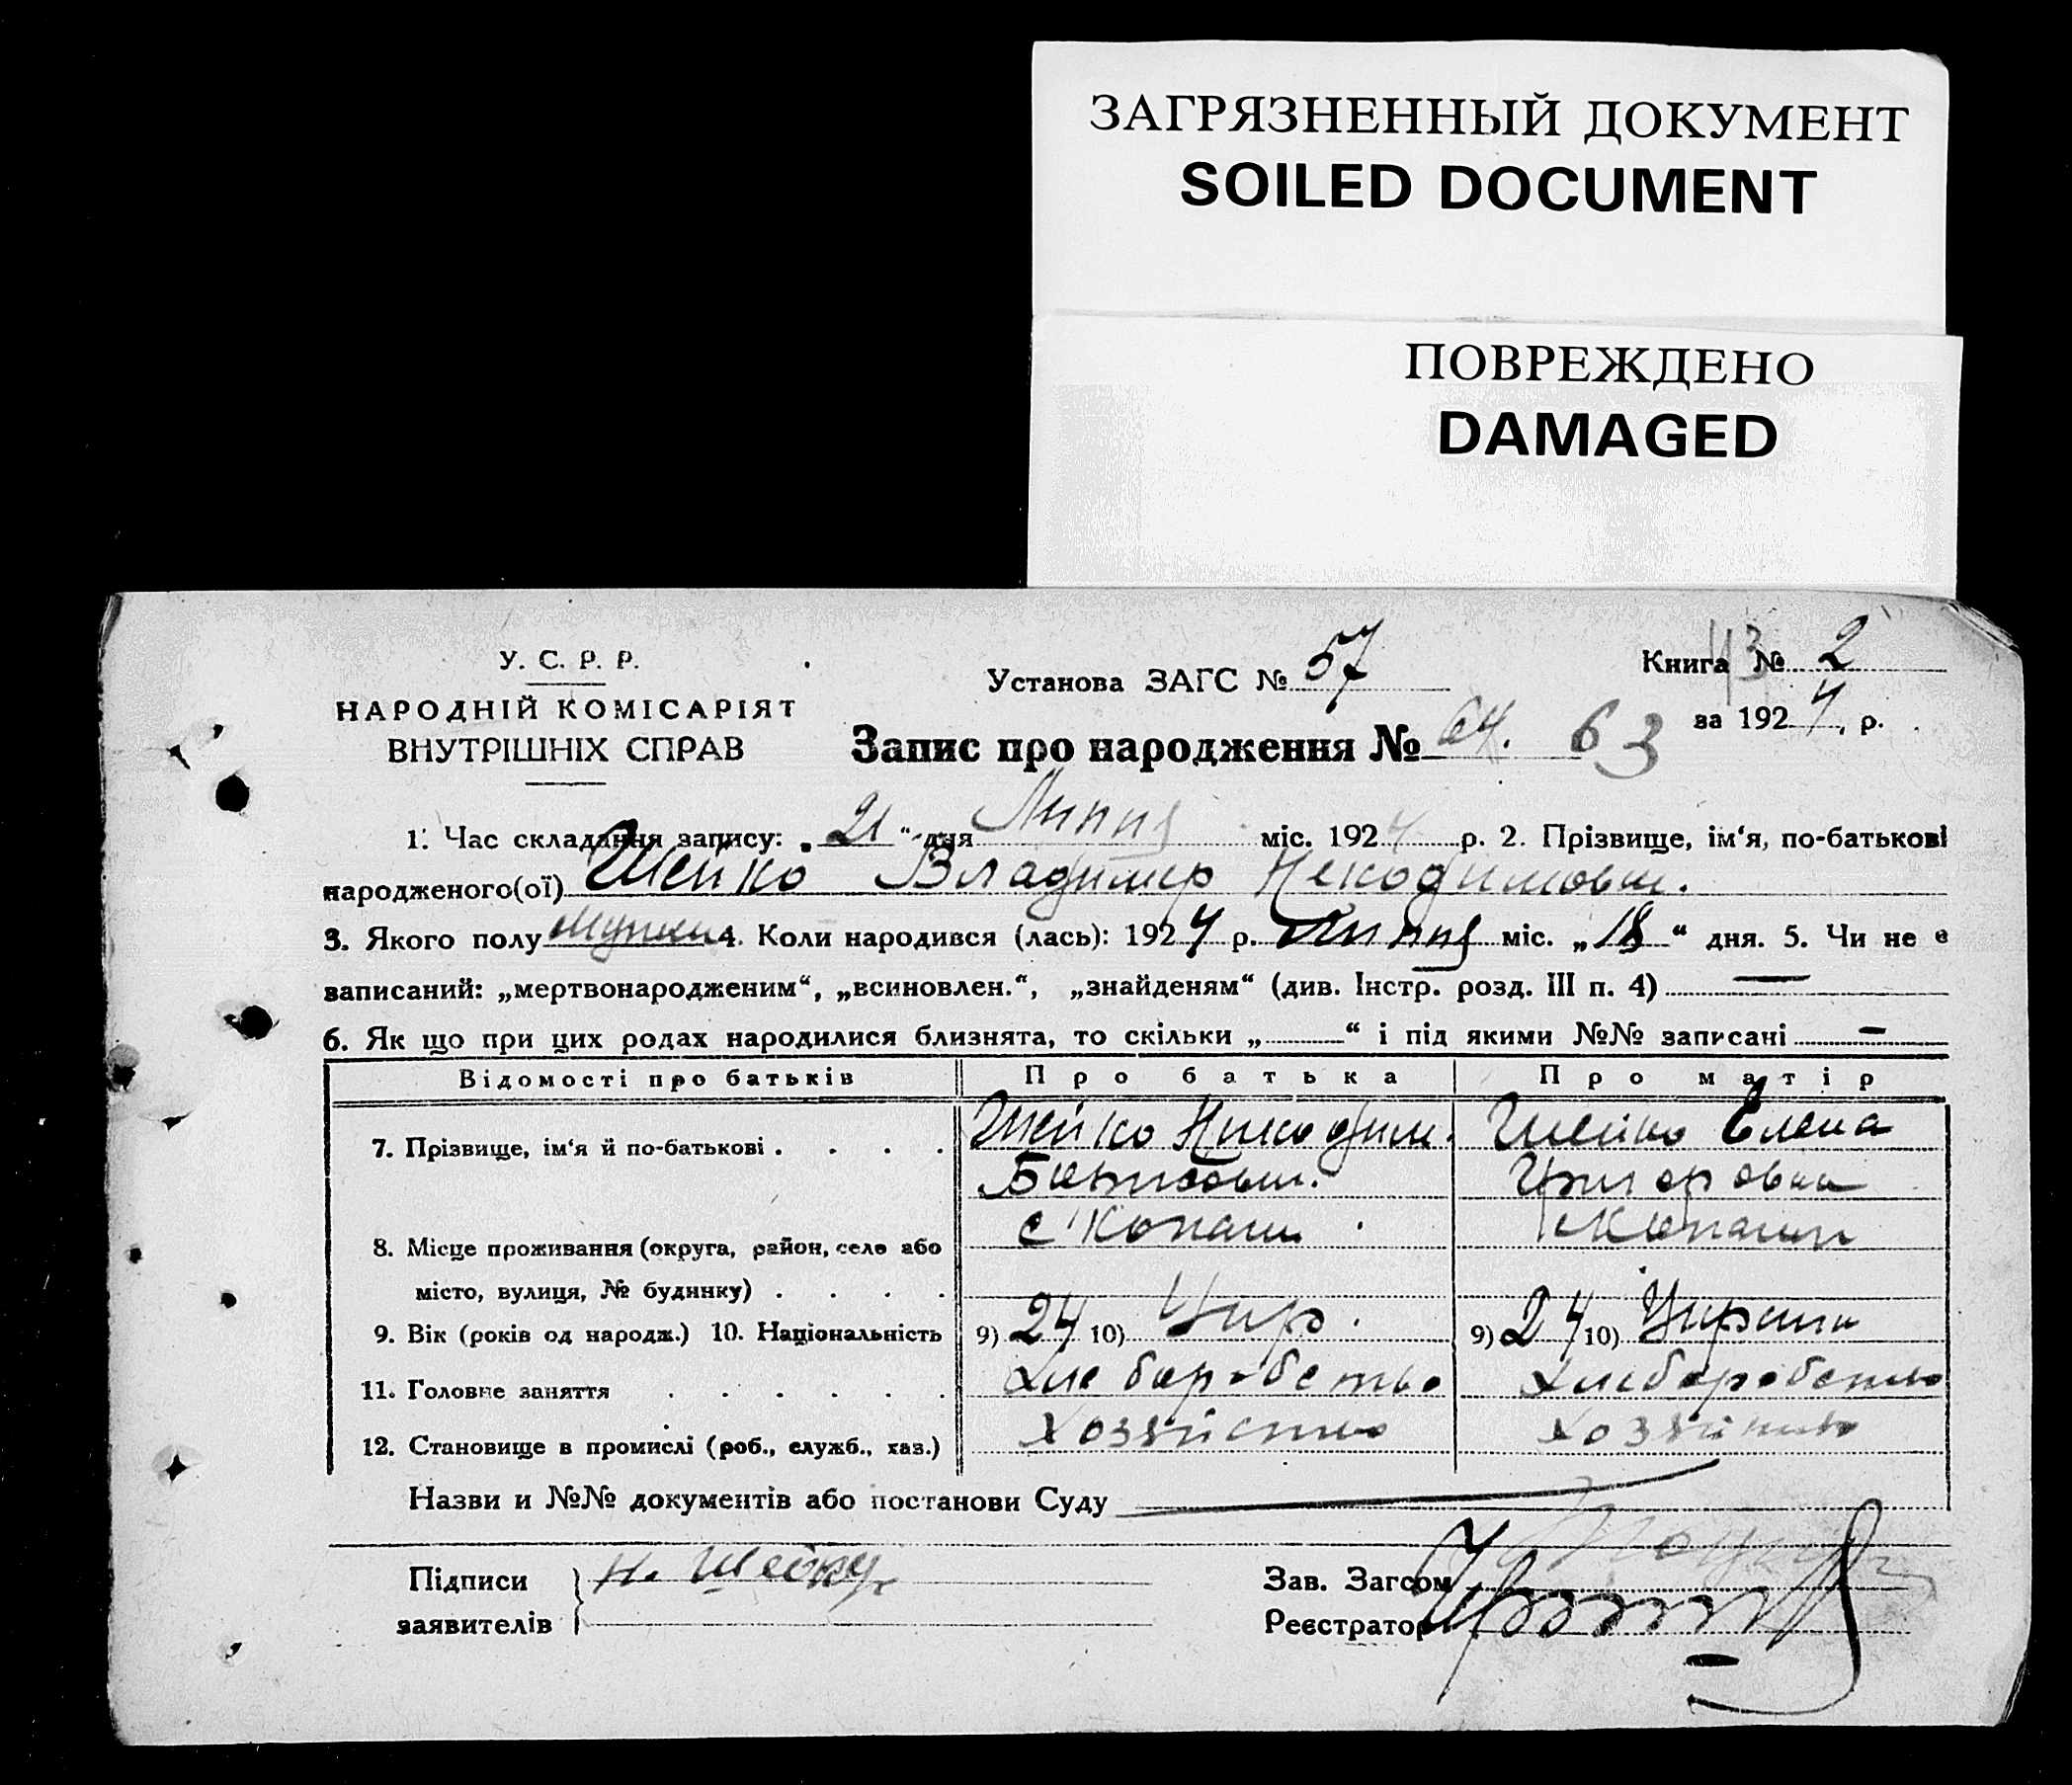 ЗАГРЯЗНЕННЫЙ ДОКУМЕНТ
SOILED DOCUMENT
ПОВРЕЖДЕНО
DAMAGED
У. С. Р. Р.
НАРОДНІЙ КОМІСАРІЯТ
ВНУТРІШНІХ СПРАВ
Установа ЗАГС № 57
Книга № 2
43
за 1924 р.
Запис про народження № 64. 63
1. Час складання запису: „21“ дня Липня міс. 1924 р. 2. Прізвище, ім‘я, по-батькові
народженого(ої) Шейко Владимер Некодимович.
3. Якого полу мужск. 4. Коли народився (лась): 1924 р. Липня міс. „18“ дня. 5. Чи не є
записаний: „мертвонародженим“, „всиновлен.“, „знайденям“ (див. Інстр. розд. III п. 4) —
6. Як що при цих родах народилися близнята, то скільки „ “ і під якими №№ записані —
Відомості про батьків Про батька Про матір
7. Прізвище, ім‘я й по-батькові . . . . Шейко Никодим. Шейко Елена
Григоровна
8. Місце проживання (округа, район, село або с Копачи Копачи
місто, вулиця, № будинку) . . . .
9. Вік (років од народж.) 10. Національність 9) 24 10) Укр. 9) 24 10) Украин
11. Головне заняття . . . . . . Хлеборобство Хлеборобство
12. Становище в промислі (роб., служб., хаз.) Хозяйство Хозяйство
Назви и №№ документів або постанови Суду —
Підписи
заявителів
Н. Шейко
Зав. Загсом
Реєстратор